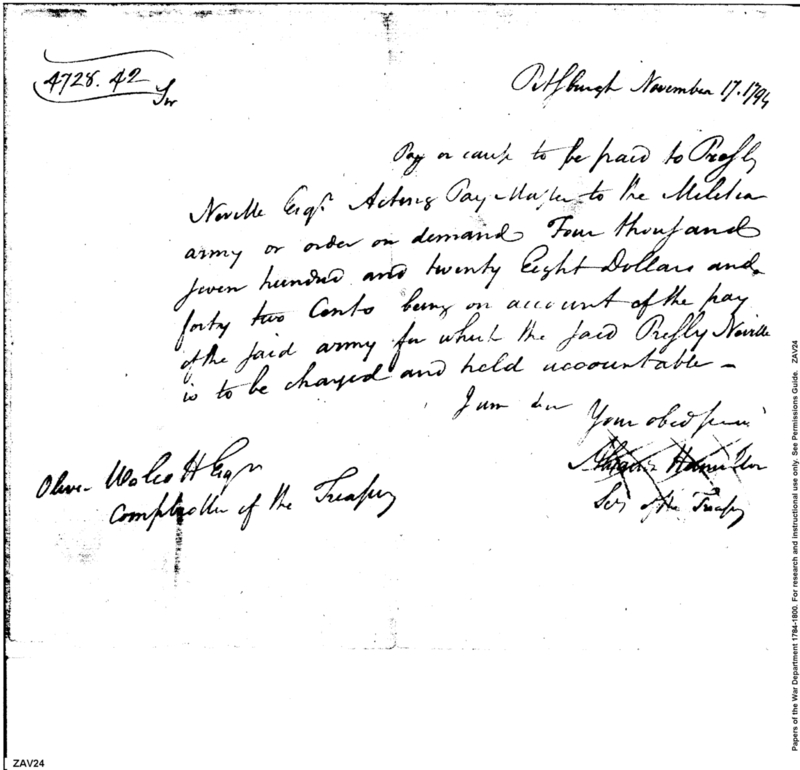 4728.42
Pittsburgh November 17. 1794
Sir
Pay or cause to be paid to Presly
Neville Esqr. Acting Pay Master to the Militia
army or order on demand Four thousand
seven hundred and twenty Eight Dollars and
forty two Cents being on account of the pay
of the said army for which the said Presly Neville
is to be charged and held accountable –
I am Sir Your obed serv
Alexander Hamilton
Secy of the Treasy
Oliver Wolcott Esqr
Comptroller of the Treasury
Papers of the War Department 1784-1800. For research and instructional use only. See Permissions Guide. ZAV24
ZAV24